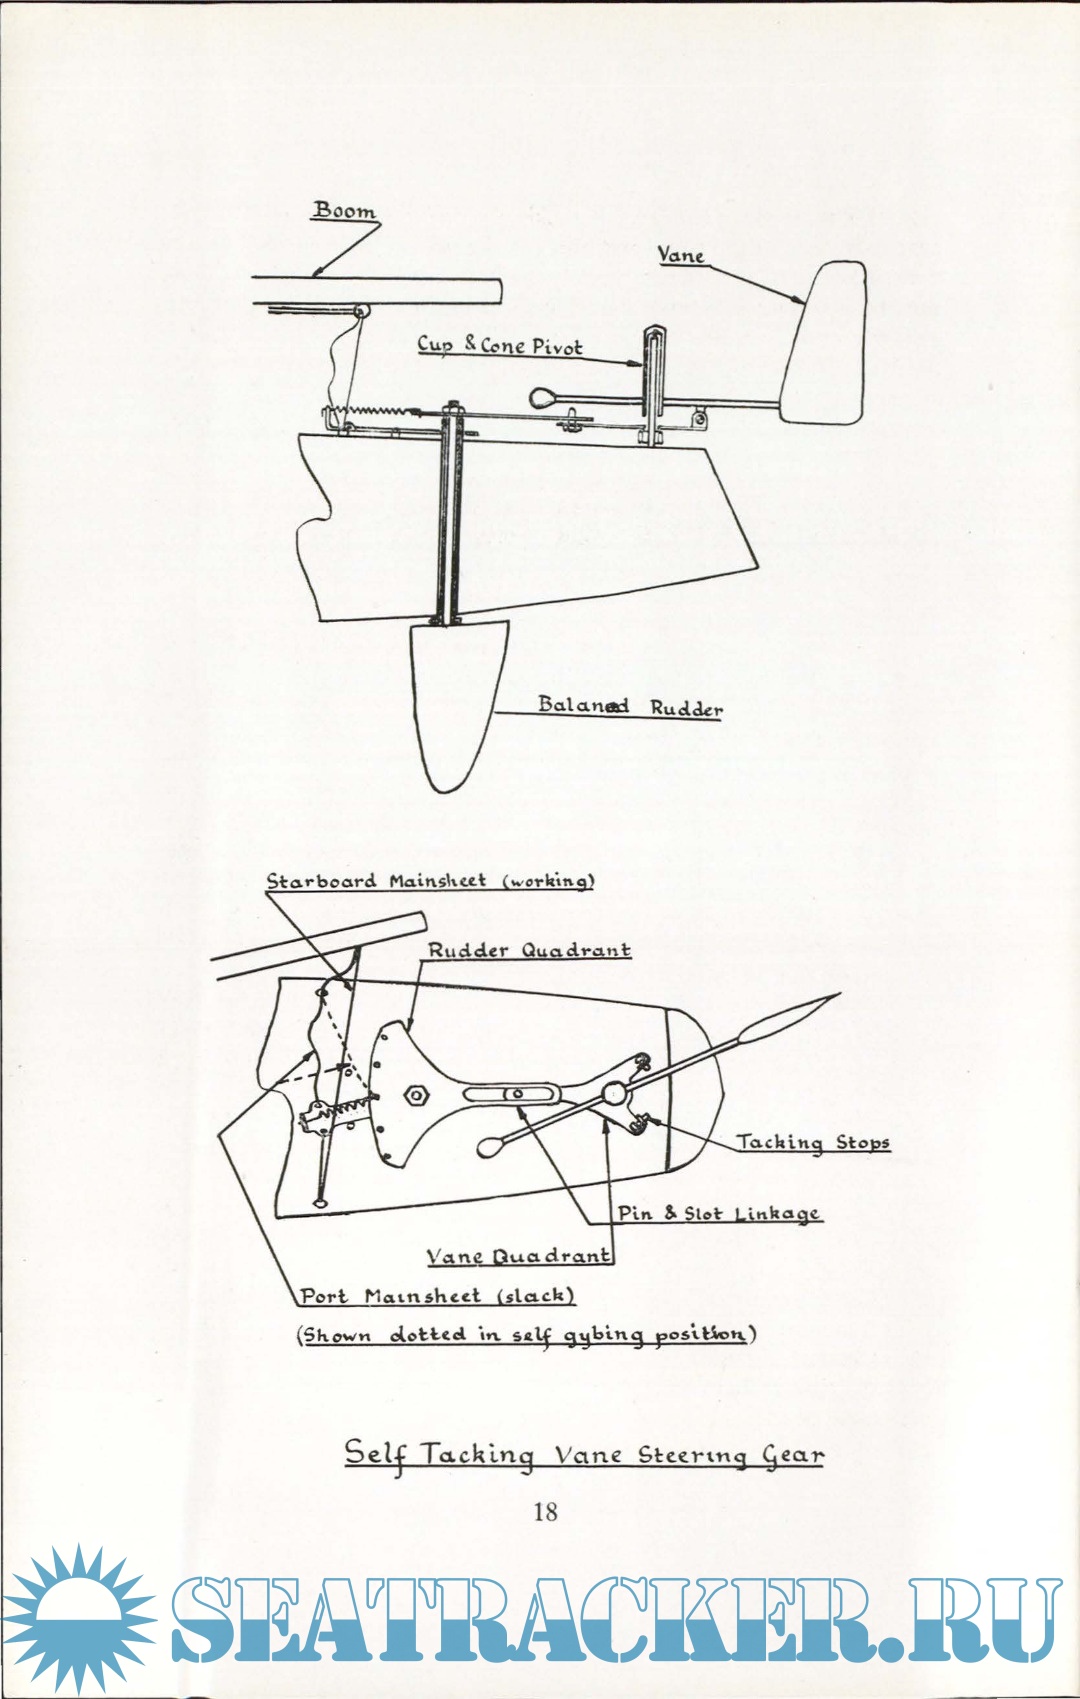 Boom
Vane
Cup & Cone Pivot
Balanced Rudder
Starboard Mainsheet (working)
Rudder Quadrant
Tacking Stops
Pin & Slot Linkage
Vane Quadrant
Port Mainsheet (slack)
(Shown dotted in self gybing position)
Self Tacking Vane Steering Gear
18
SEATRACKER.RU